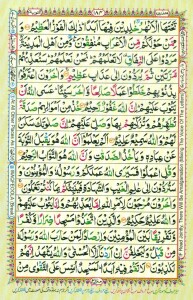 تَحْتَهَا الْاَنْهٰرُ خٰلِدِیْنَ فِیْهَاۤ اَبَدًا ذٰلِكَ الْفَوْزُ الْعَظِیْمُ
وَمِمَّنْ حَوْلَكُمْ مِّنَ الْاَعْرَابِ مُنٰفِقُوْنَ وَمِنْ اَهْلِ الْمَدِیْنَةِ
مَرَدُوْا عَلَی النِّفَاقِ لَا تَعْلَمُهُمْ نَحْنُ نَعْلَمُهُمْ سَنُعَذِّبُهُمْ
مَّرَّتَیْنِ ثُمَّ یُرَدُّوْنَ اِلٰی عَذَابٍ عَظِیْمٍ وَاٰخَرُوْنَ اعْتَرَفُوْا
بِذُنُوْبِهِمْ خَلَطُوْا عَمَلًا صَالِحًا وَّاٰخَرَ سَیِّئًا عَسَی اللّٰهُ اَنْ یَّتُوْبَ
عَلَیْهِمْ اِنَّ اللّٰهَ غَفُوْرٌ رَّحِیْمٌ خُذْ مِنْ اَمْوَالِهِمْ صَدَقَةً
تُطَهِّرُهُمْ وَتُزَكِّیْهِمْ بِهَا وَصَلِّ عَلَیْهِمْ اِنَّ صَلٰوتَكَ سَكَنٌ لَّهُمْ
وَاللّٰهُ سَمِیْعٌ عَلِیْمٌ اَلَمْ یَعْلَمُوْۤا اَنَّ اللّٰهَ هُوَ یَقْبَلُ التَّوْبَةَ
عَنْ عِبَادِهٖ وَیَاْخُذُ الصَّدَقٰتِ وَاَنَّ اللّٰهَ هُوَ التَّوَّابُ الرَّحِیْمُ
وَقُلِ اعْمَلُوْا فَسَیَرَی اللّٰهُ عَمَلَكُمْ وَرَسُوْلُهٗ وَالْمُؤْمِنُوْنَ
وَسَتُرَدُّوْنَ اِلٰی عٰلِمِ الْغَیْبِ وَالشَّهَادَةِ فَیُنَبِّئُكُمْ بِمَا كُنْتُمْ
تَعْمَلُوْنَ وَاٰخَرُوْنَ مُرْجَوْنَ لِاَمْرِ اللّٰهِ اِمَّا یُعَذِّبُهُمْ وَاِمَّا یَتُوْبُ
عَلَیْهِمْ وَاللّٰهُ عَلِیْمٌ حَكِیْمٌ وَالَّذِیْنَ اتَّخَذُوْا مَسْجِدًا ضِرَارًا وَّكُفْرًا
وَّتَفْرِیْقًا بَیْنَ الْمُؤْمِنِیْنَ وَاِرْصَادًا لِّمَنْ حَارَبَ اللّٰهَ وَرَسُوْلَهٗ
مِنْ قَبْلُ وَلَیَحْلِفُنَّ اِنْ اَرَدْنَاۤ اِلَّا الْحُسْنٰی وَاللّٰهُ یَشْهَدُ اِنَّهُمْ
لَكٰذِبُوْنَ لَا تَقُمْ فِیْهِ اَبَدًا لَمَسْجِدٌ اُسِّسَ عَلَی التَّقْوٰی مِنْ